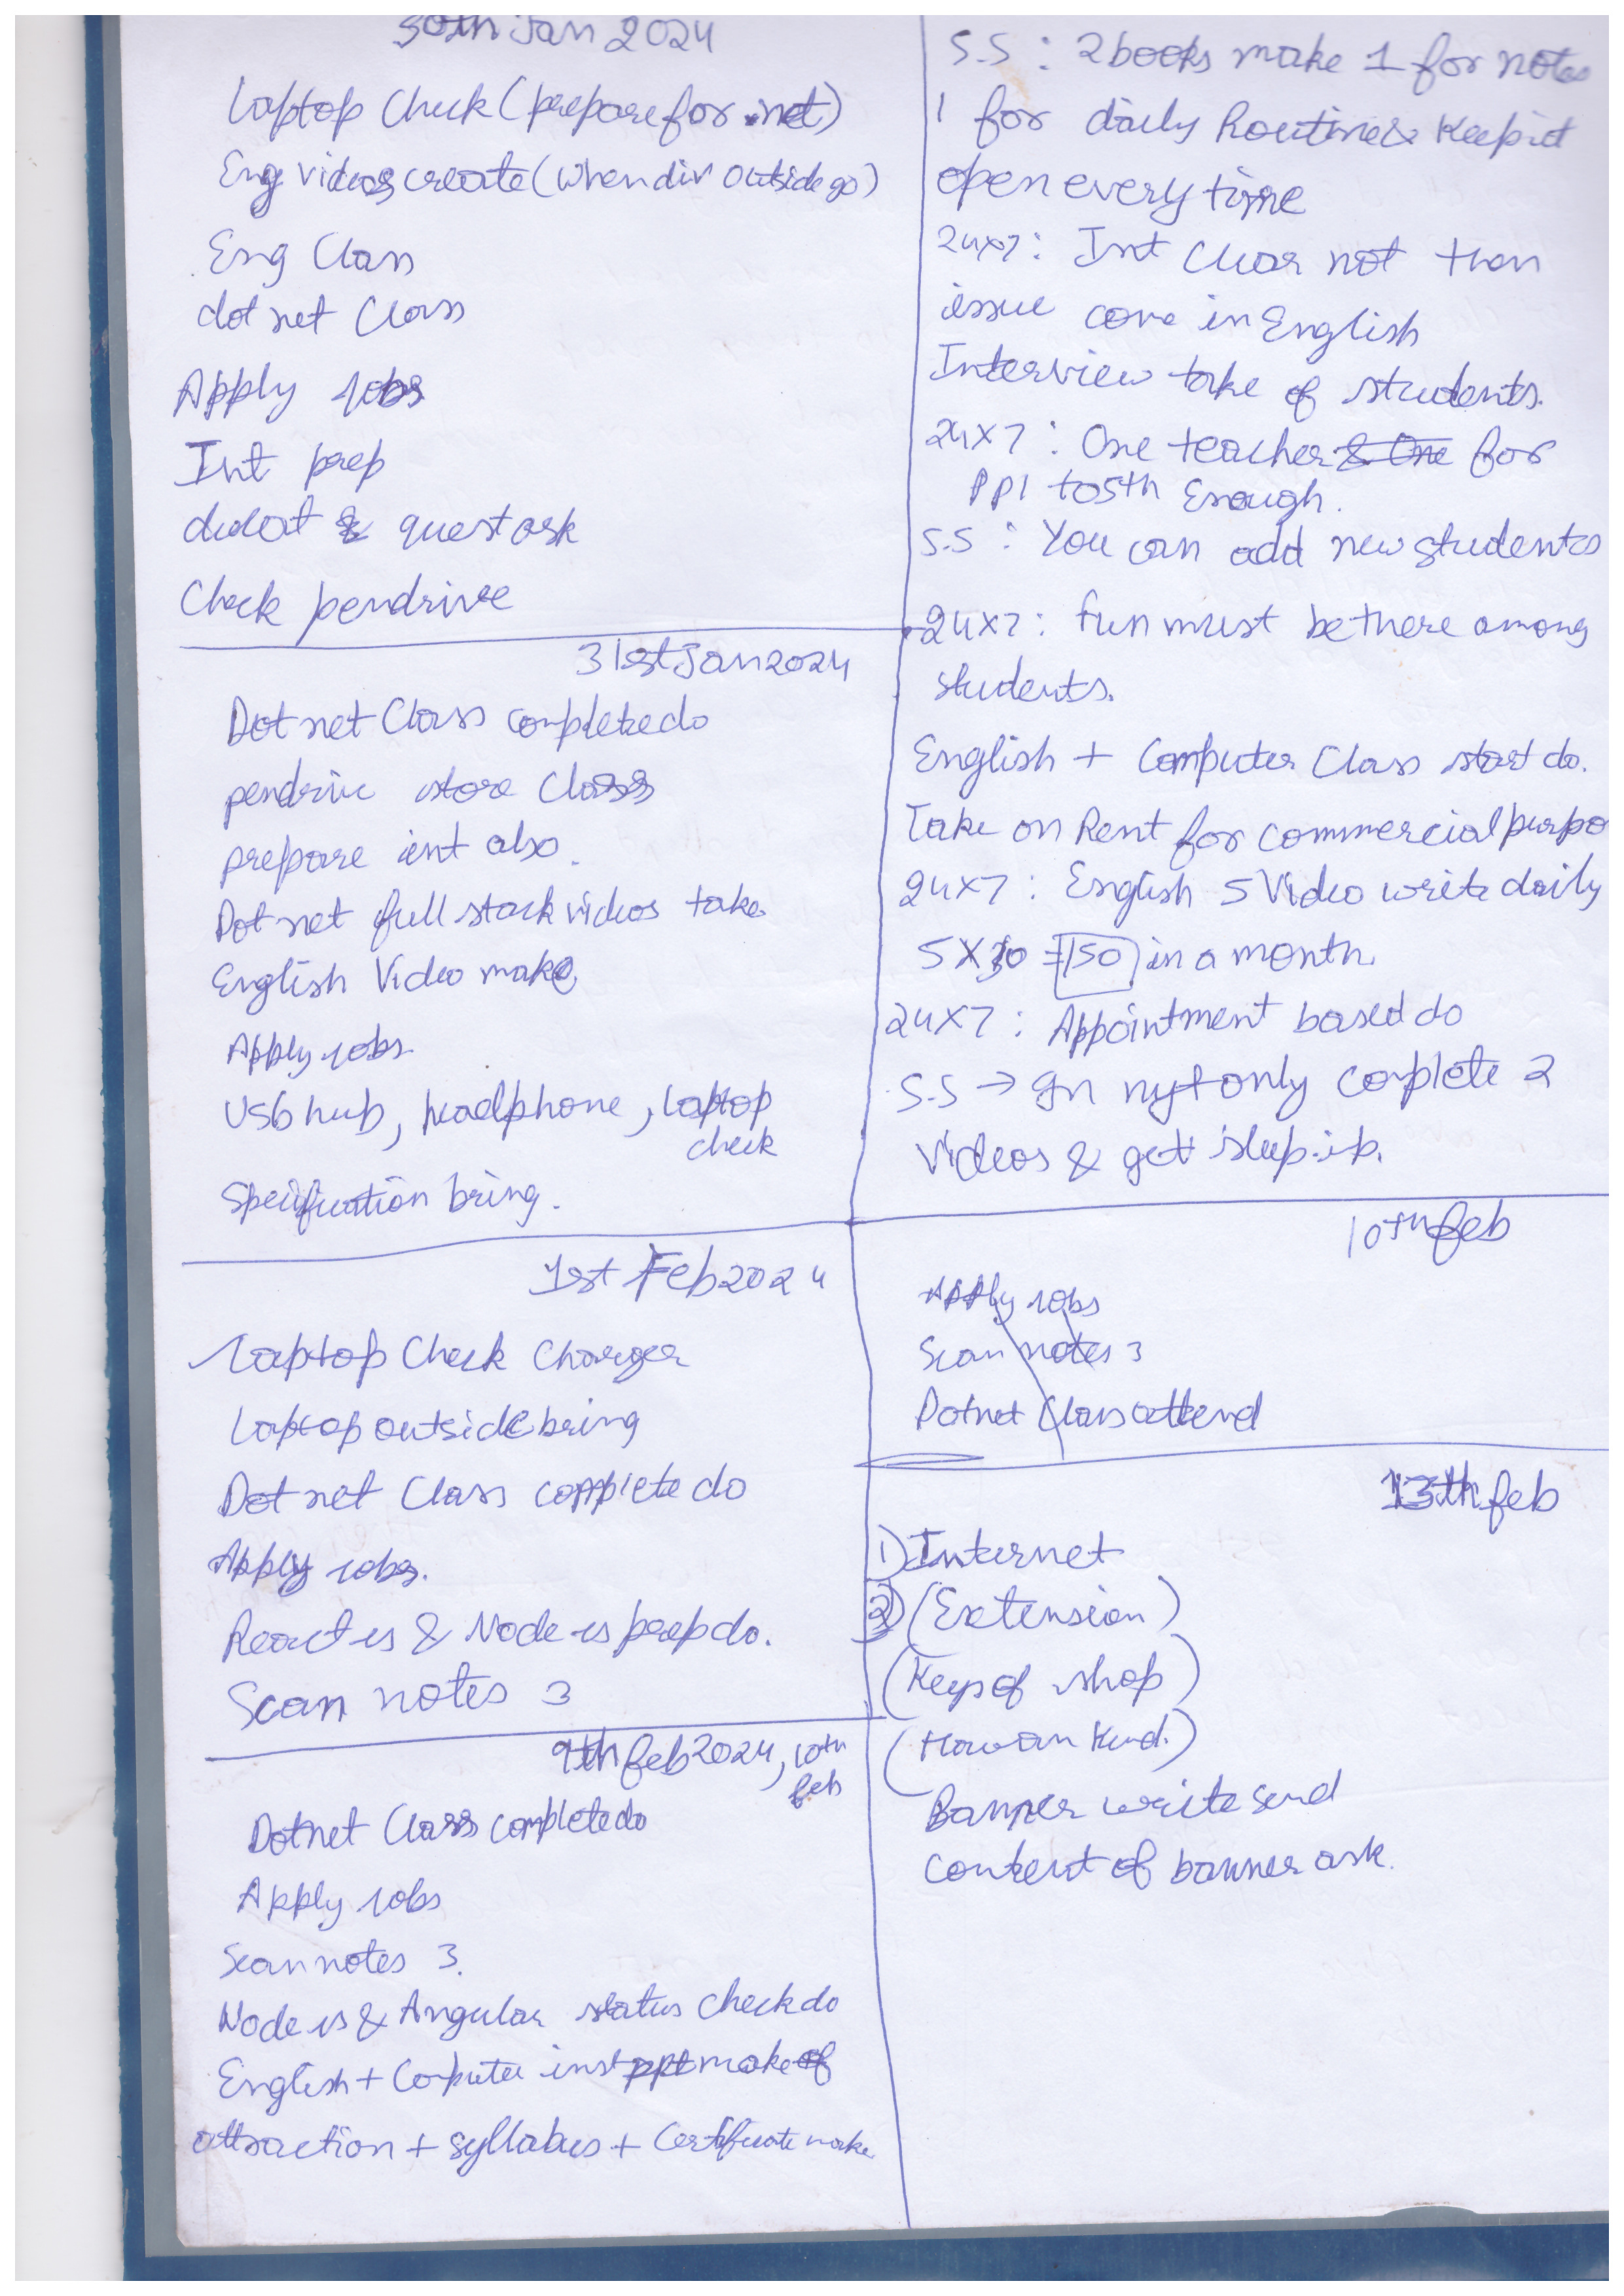 30th Jan 2024
Laptop Check (prepare for .net)
Eng videos create (when div outside go)
Eng Class
dot net Class
Apply jobs
Int prep
& quest ask
Check pendrive
31st Jan 2024
Dot net Class complete do
pendrive store Class
prepare int also.
Dot net full stack videos take
English Video make
Apply jobs.
USb hub, headphone, laptop
check
Specification bring.
1st Feb 2024
Laptop Check Charger
Laptop outside bring
Dot net Class complete do
Apply jobs.
React js & Node js prep do.
Scan notes 3
9th feb 2024, 10th
feb
Dotnet Class complete do
Apply jobs
Scan notes 3.
Node js & Angular status check do
English + Computer inst ppt make of
attraction + syllabus + Certificate make
S.S : 2 books make 1 for notes
1 for daily Routine & Keep it
open every time
24x7 : Int Clear not then
issue come in English
Interview take of students.
24x7 : One teacher & One for
PP1 to 5th Enough.
S.S : You can add new students
24x7 : fun must be there among
students.
English + Computer Class start do.
Take on Rent for commercial purpo
24x7 : English 5 Video write daily
5X30 = 150 in a month.
24x7 : Appointment based do
S.S → gn nyt only complete 2
Videos & get sleep
10th feb
Apply jobs
Scan notes 3
Dotnet Class attend
13th feb
1) Internet
2) (Extension)
(Keys of shop)
(Hawan Kund.)
Banner write send
Content of banner ask.